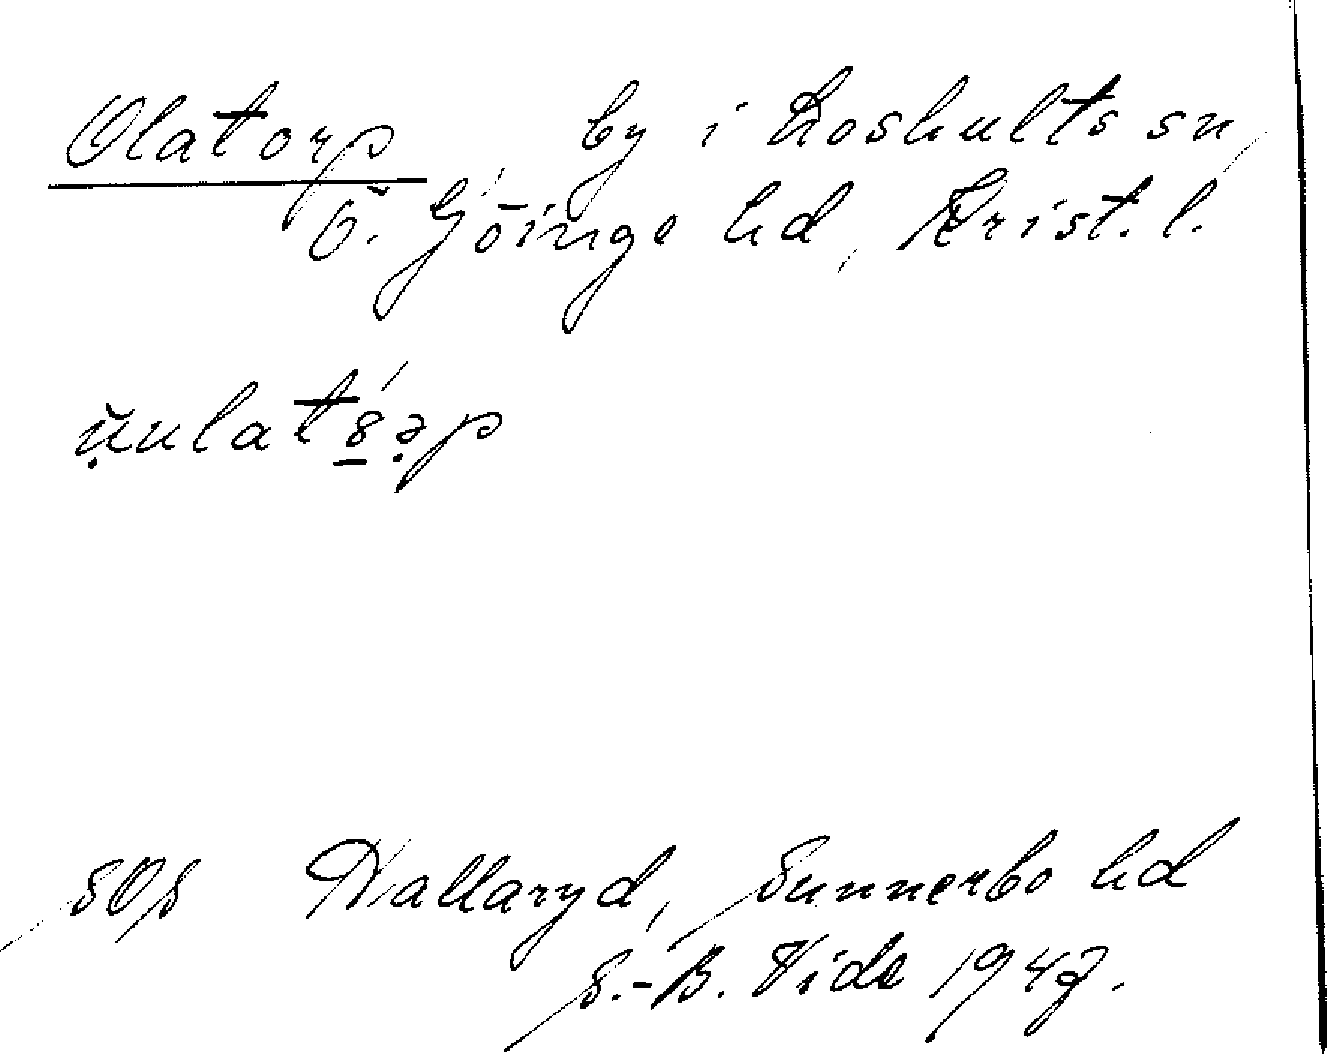 Olatorp, by i Loshults sn,
Ö. Göinge hd, Krist. l.
ụ̆ulatś̱ə̣p
SOS Hallaryd, Sunnerbo hd
S.-B. Vide 1947.